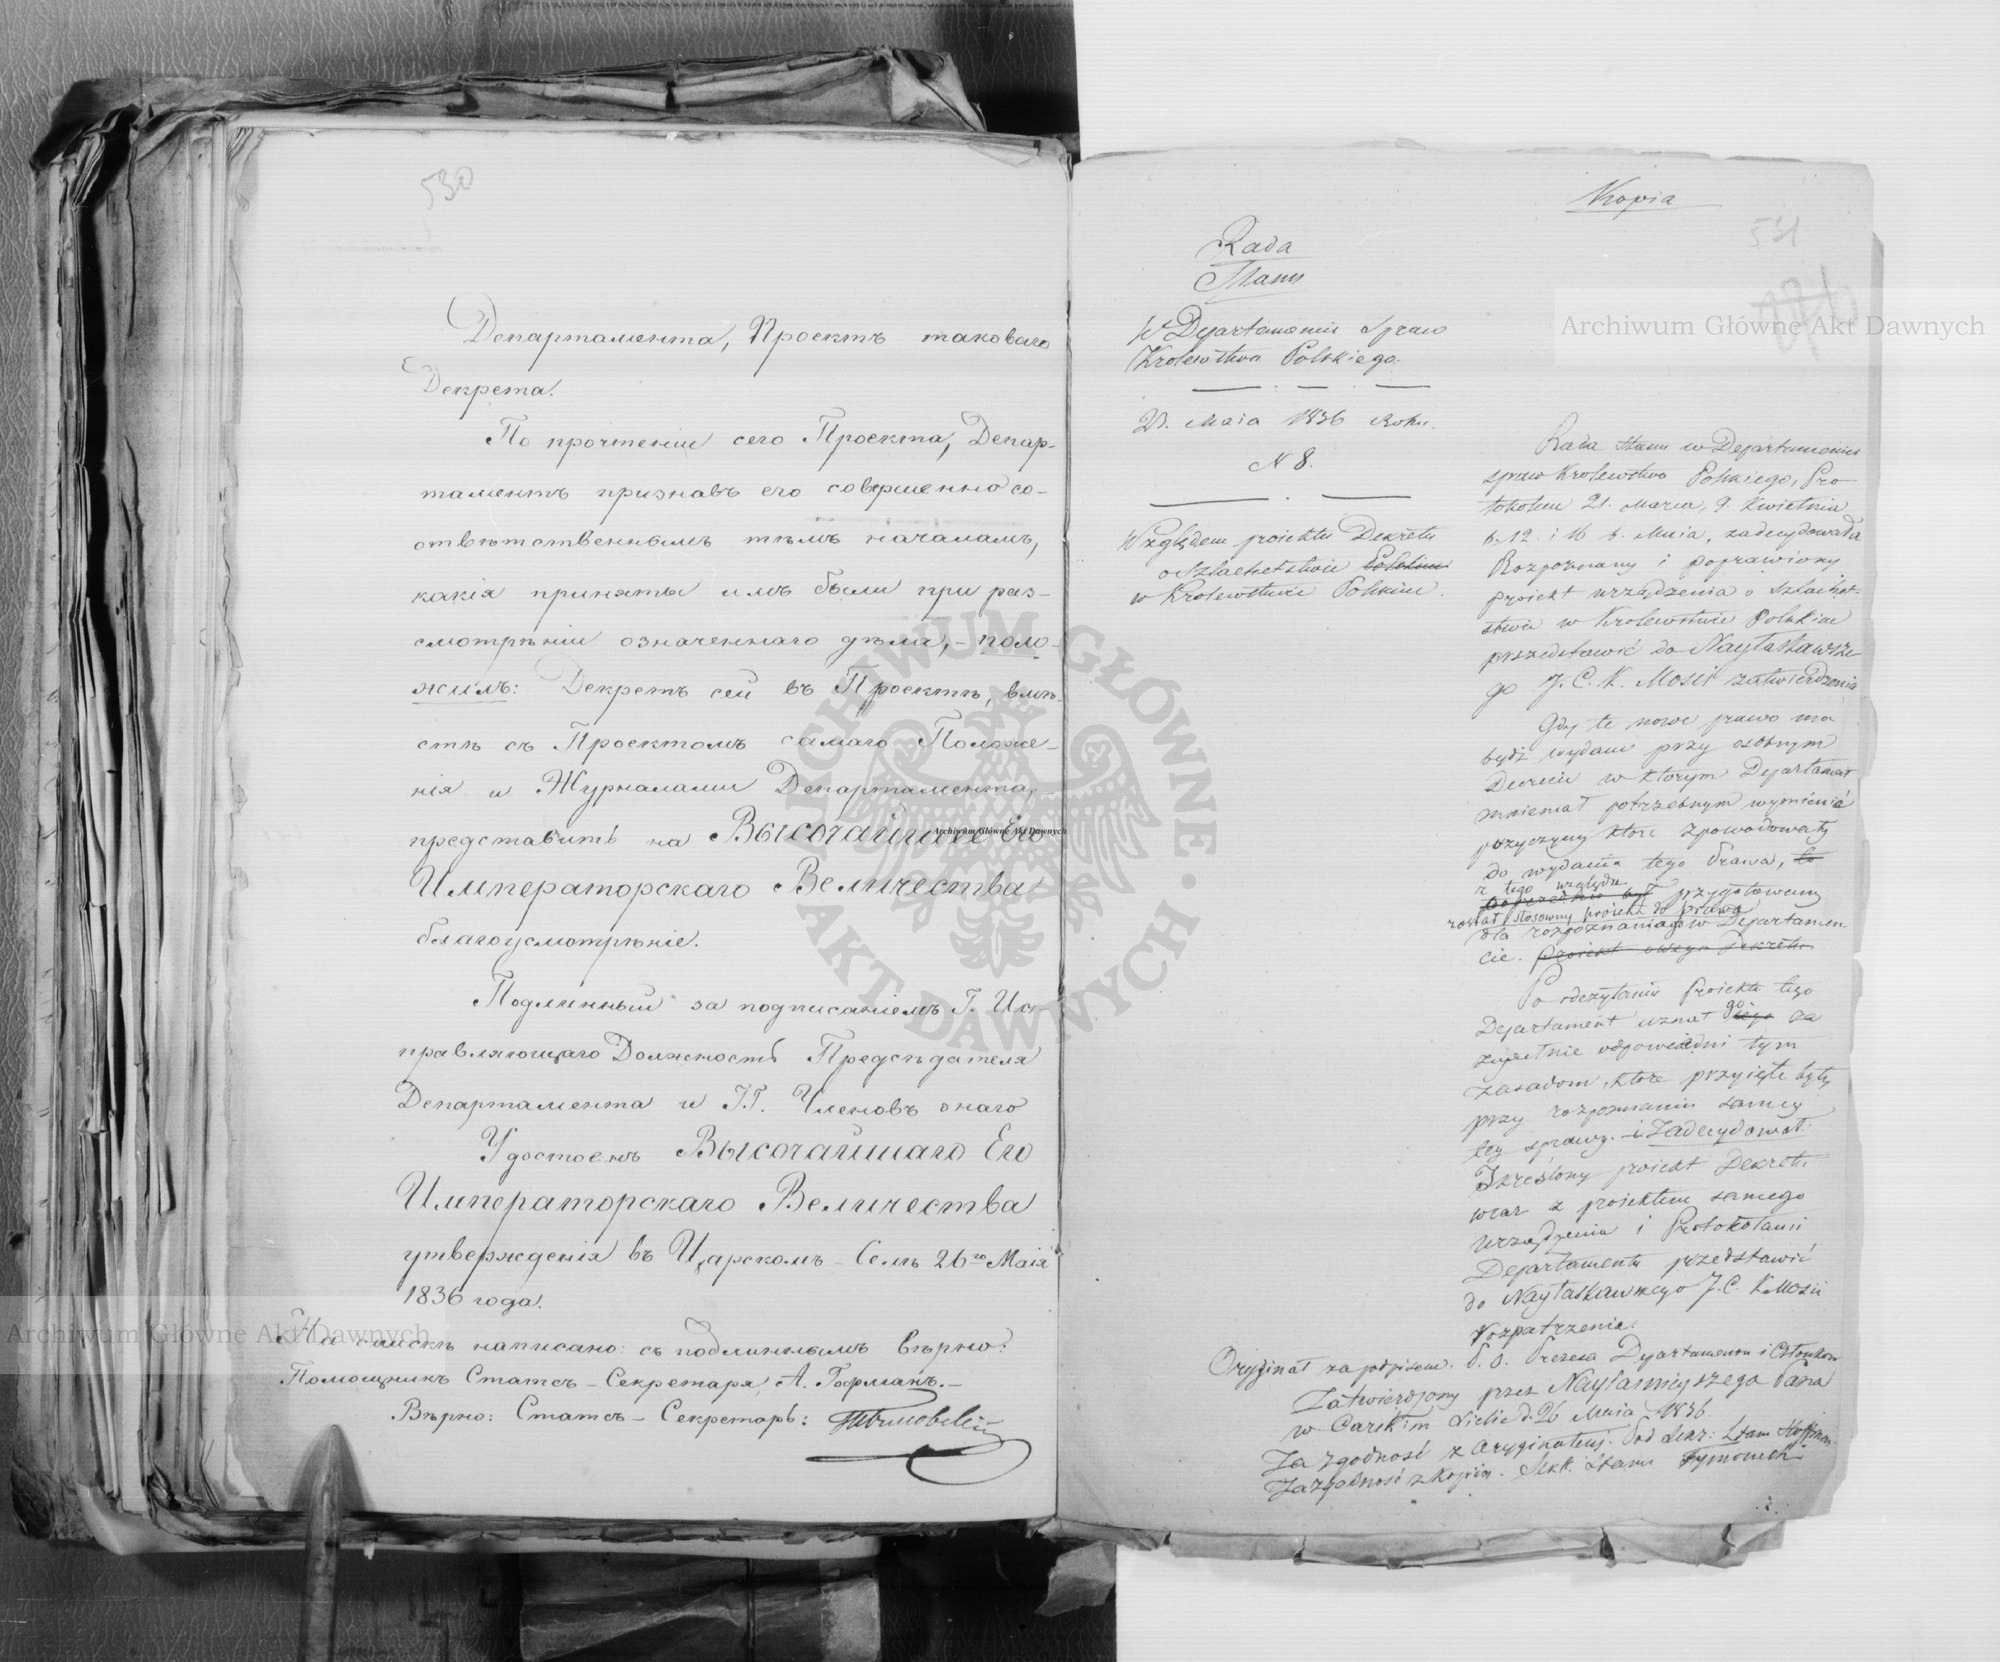 530
Департамента, Проектъ таковаго
Декрета.
По прочтеніи сего Проекта, Депар-
таментъ признавъ его совершенно со-
отвѣтственнымъ тѣмъ началамъ,
какія приняты имъ были при раз-
смотрѣніи означеннаго дѣла, – поло-
жилъ: Декретъ сей въ Проектѣ, вмѣ-
стѣ съ Проектомъ самаго Положе-
нія и Журналами Департамента,
представить на Высочайшее Его
Императорскаго Величества
благоусмотрѣніе.
Подлинный за подписаніемъ Г. Ис-
правляющаго Должность Предсѣдателя
Департамента и Г.Г. Членовъ онаго
Удостоенъ Высочайшаго Его
Императорскаго Величества
утвержденія въ Царскомъ – Селѣ 26го Маія
1836 года.
На спискѣ написано: съ подлиннымъ вѣрно:
Помощникъ Статсъ – Секретаря, А. Гофманъ. –
Вѣрно: Статсъ – Секретарь:
Kopia
531
Rada
Stanu
W Departamencie Spraw
Krolewstwa Polskiego.
23. Maia 1836 Roku.
N 8.
Względem proiektu Dekretu
o Szlachetstwie
w Krolewstwie Polskim.
Rada Stanu w Departamencie
spraw Krolewstwa Polskiego, Pro
tokołem 21. Marca, 9. Kwietnia
b. 12. i 16 b. Maia, zadecydowała
Rozpoznany i poprawiony
proiekt urządzenia o Szlachet-
stwie w Krolewstwie Polskim
przedstawić do Nayłaskawsze
go J. C. K. Mosci zatwierdzenia
Gdy te nowe prawo ma
będź wydane przy osobnym
Dekrecie w ktorym Departament
mniemał potrzebnym wymienić
przyczyny ktore spowodowały
do wydania tego Prawa, to
z tego względu
przygotowany
został stosowny proiekt do prawa
dla rozpoznania go w Departamen
cie. Proiekt owego Dekretu
Po odczytaniu Proiektu tego
Departament uznał go za
zupełnie odpowiedni tym
zasadom, ktore przyięte były
przy rozpoznaniu samey
tey sprawy. i Zadecydował.
Skreslony proiekt Dekretu
wraz z proiektem samego
urządzenia i Protokołami
Departamentu przedstawić
do Nayłaskawszego J. C. K Mosci
Rozpatrzenia.
Oryginał za podpisem. P. O. Prezesa Departamentu i Członkow
Zatwierdzony przez Nayiasnieyszego Pana
w Carskim Siele d. 26 Maia 1836.
Za zgodność z Oryginałem. Pod Sekr: Stanu Hoffman
Za zgodność z Kopią. Sekr. Stanu Tymowski
Archiwum Główne Akt Dawnych
Archiwum Główne Akt Dawnych
Archiwum Główne Akt Dawnych
ARCHIWUM GŁÓWNE AKT DAWNYCH